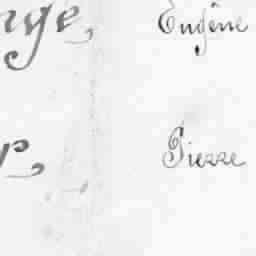 nge, Eugène
r, Pierre